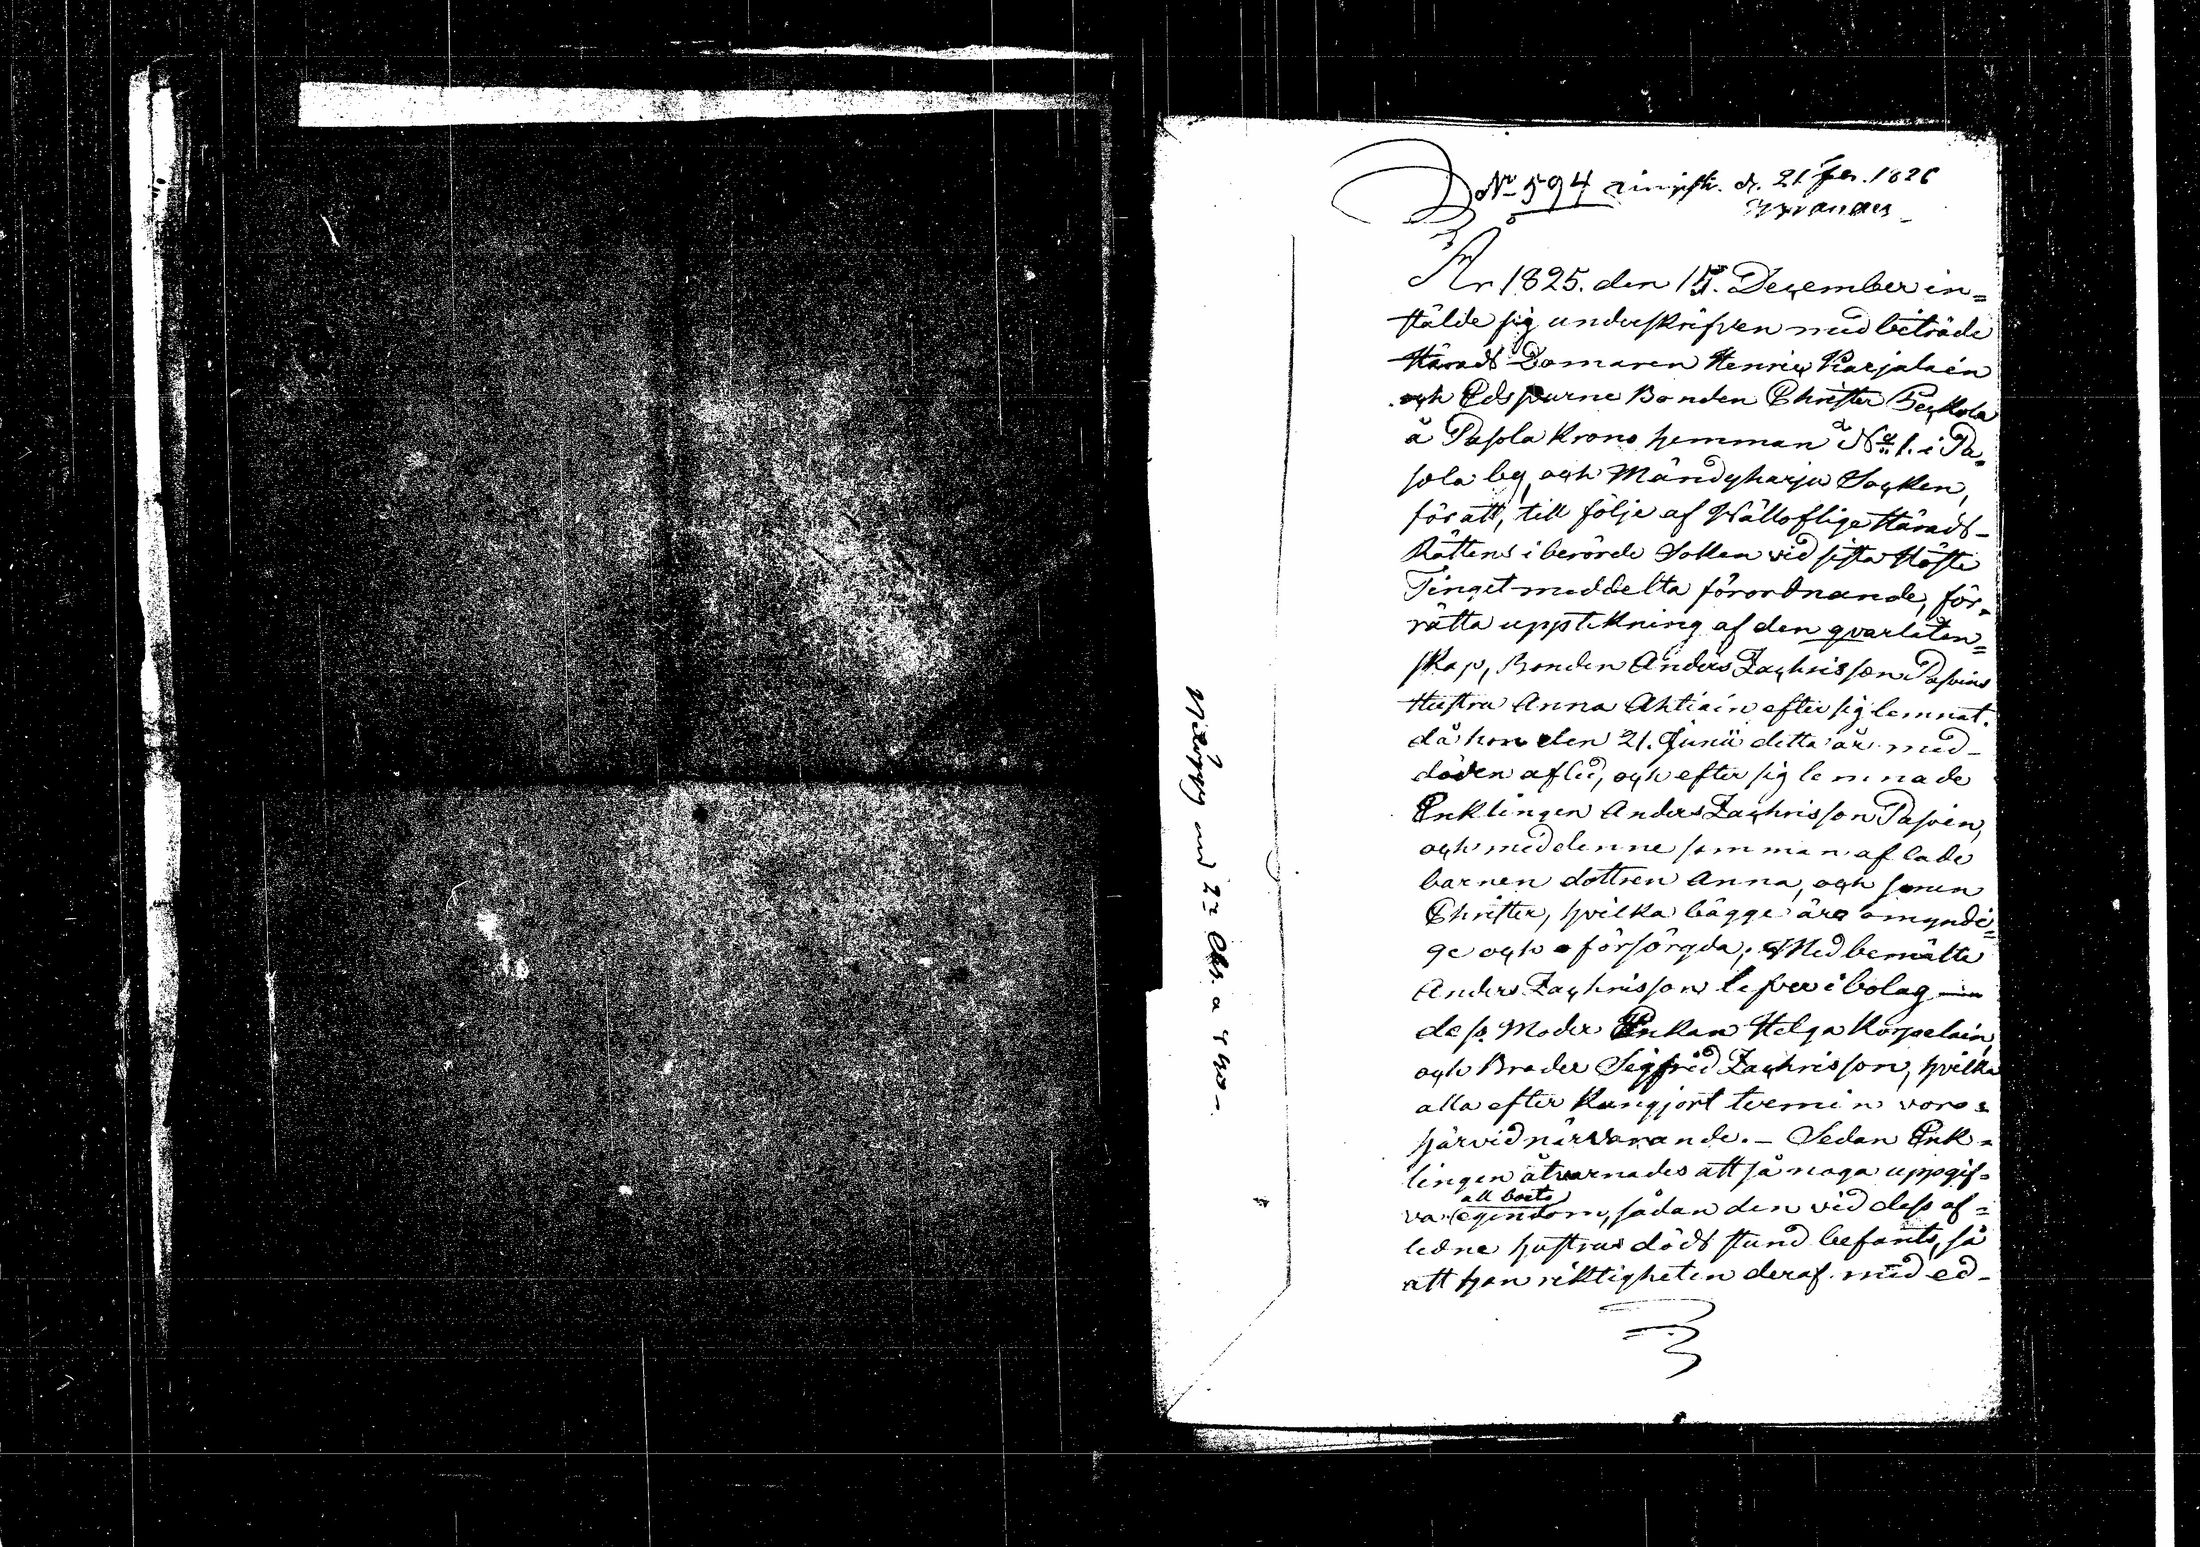 No 594 d. 21 Feb. 1826
År 1825. den 15. December in=
stälde sig underskrifven med biträde
Härads Domaren Henric Karjalain
och Edsvurne Bonden Christer Peckola
å Pasola Krono hemman No 1. i Pa=
sola by, och Mändyharju Socken,
för att, till följe af Wälloflige Härads-
Rättens i berörde Sokken vid sista Höste
Tinget meddelta förordnande, för=
rätta uppteckning af den qvarlåten=
skap, Bonden Anders Zachrisson Pasoins
Hustru Anna Ahtiain efter sig lemnat.
då hon den 21. Junii detta år med-
döden afled, och efter sig lemnade
Enklingen Anders Zachrisson Pasoin,
och med denne sammanaflade
barnen dottren Anna, och sonen
Christer, hvilka bägge äro omyndi=
ge och oförsörgda; Med bemälte
Anders Zachrisson lefver i bolag
dess Moder Enkan Helga Korpelain,
och Broder Sigfrid Zachrisson, hvilka
alla efter kungjort termin voro
härvid närvarande. - Sedan Enk=
lingen åtvarnades att så noga uppgif=
all boets
va egendom, sådan den vid dess af=
ledne hustrus döds stund befants, så
att han riktigheten deraf med ed-